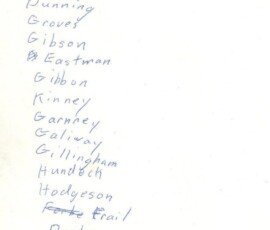 Dunning
Groves
Gibson
Eastman
Gibbon
Kinney
Garnney
Galiway
Gillingham
Hundock
Hodgeson
Frail